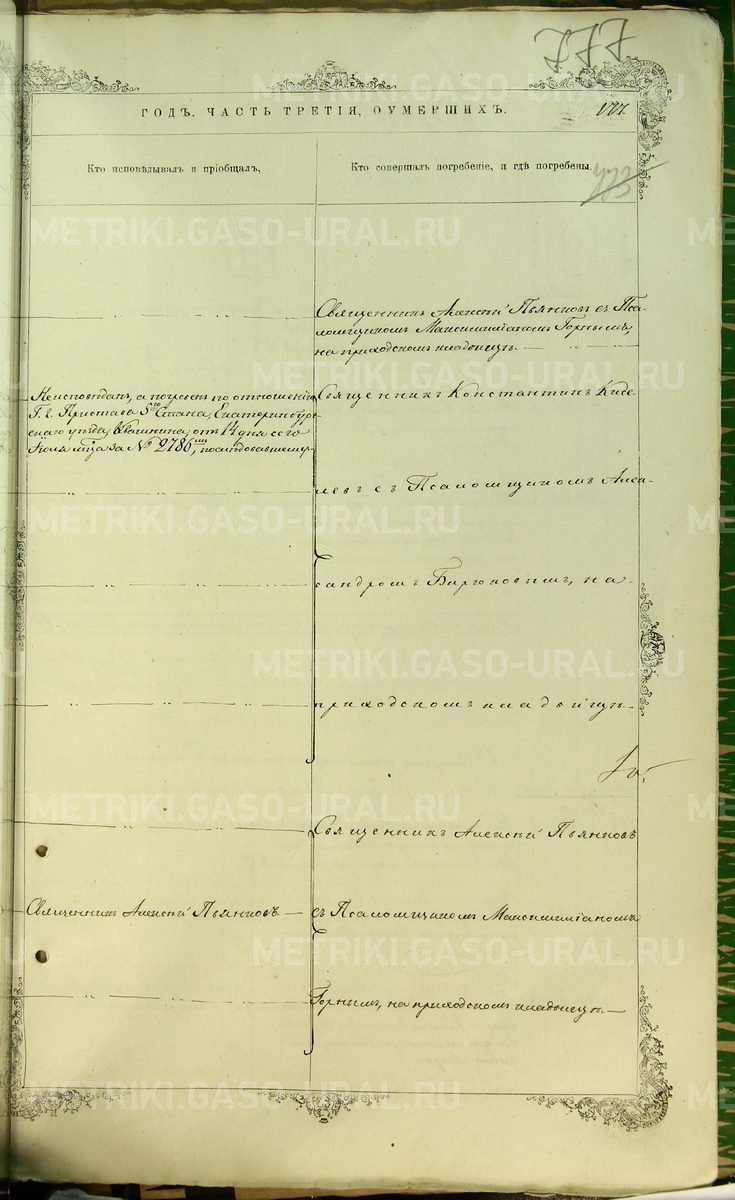 777
ГОДЪ. ЧАСТЬ ТРЕТІЯ, О УМЕРШИХЪ.
177.
773
Кто исповѣдывалъ и пріобщалъ,
Кто совершалъ погребеніе, и гдѣ погребены.
METRIKI.GASO-URAL.RU
Священникъ Алексѣй Пьянковъ съ Пса-
ломщикомъ Максимиліаномъ Горнымъ,
на приходскомъ кладбищѣ
Неисповѣданъ, а погребенъ по отношенію
Г. Пристава 5го Стана, Екатеринбург-
скаго уѣзда, отъ 14 дня сего
Іюля м͠ца за № 2786,
Священникъ Константинъ Кисе-
левъ съ Псаломщикомъ Алек-
сандромъ Бирюковымъ, на
приходскомъ кладбищѣ
Священникъ Алексѣй Пьянковъ
Священникъ Алексѣй Пьянковъ
съ Псаломщикомъ Максимиліаномъ
Горнымъ, на приходскомъ кладбищѣ